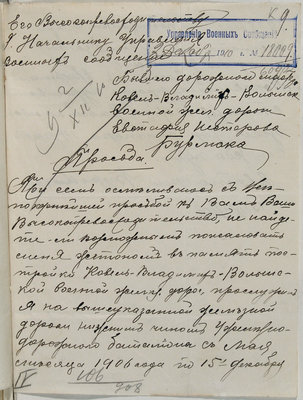 Его Высокопревосходительству
г. Начальнику Управления
военных сообщений
К 9
Управление Военных Сообщений
1910 г. №
Бывшего дорожного
Ковель-Владимир-Волынск
военной жел. дороги
Евстафия Несторова
Бурмака
Просьба
При сем осмеливаюсь с
покорнейшей просьбой к Вам Ваше
Высокопревосходительство, не найде-
те-ли возможным пожаловать
меня жетоном в память пос-
тройки Ковель-Влад-мир-Волынс-
кой военной желез. дорог, прослужил
я на вышеуказанной железной
дороги нижним чином Железно-
дорожного баталиона с Мая
месяца 1906 года по 15е декабря
IV
106
208